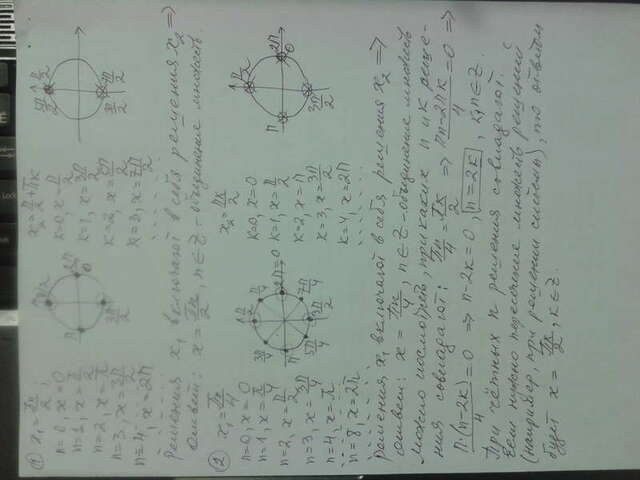 ① x₁ = πn/2;
n=0, x=0
n=1, x=π/2
n=2, x=π
n=3, x=3π/2
n=4, x=2π
π/2
π
2π
0
3π/2
x₂ = π/2 + πk
k=0, x=π/2
k=1, x=3π/2
k=2, x=5π/2
k=3, x=7π/2
5π/2
π/2
3π/2
7π/2
Решения x₁ включают в себя решения x₂ ⟹
ответ: x = πn/2, n∈Z - объединение множеств.
② x₁ = πn/4
n=0, x=0
n=1, x=π/4
n=2, x=π/2
n=3, x=3π/4
n=4, x=π
n=8, x=2π
π/2
π/4
3π/4
π
2π=0
5π/4
3π/2
7π/4
x₂ = πk/2
k=0, x=0
k=1, x=π/2
k=2, x=π
k=3, x=3π/2
k=4, x=2π
π/2
π
2π
0
3π/2
Решения x₁ включают в себя решения x₂ ⟹
ответ: x = πn/4, n∈Z - объединение множеств
можно посмотреть, при каких n и k реше-
ния совпадают: πn/4 = πk/2 ⟹ (πn-2πk)/4 = 0 ⟹
π·(n-2k)/4 = 0 ⟹ n-2k=0, n=2k, k,n∈Z.
При чётных n решения совпадают.
Если нужно пересечение множеств решений
(например, при решении системы), то ответом
будет x = πk/2, k∈Z.